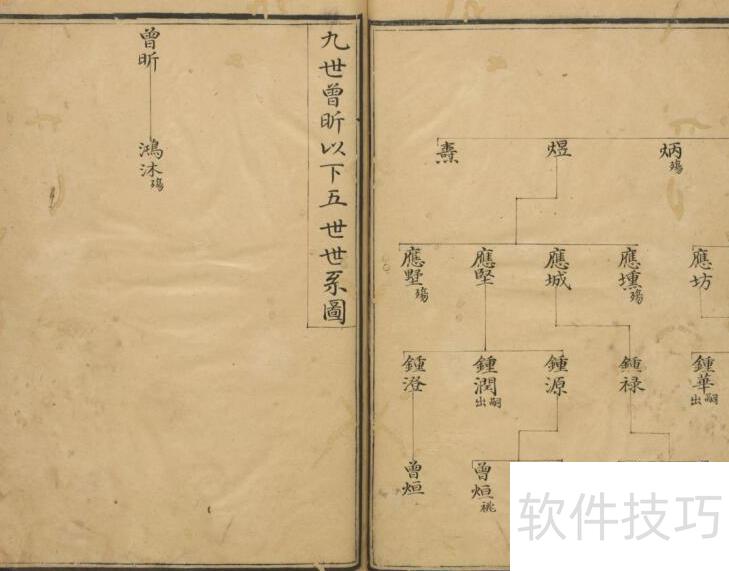 九世曾昕以下五世世系圖
曾昕
鴻沐殤
炳殤
煜
應坊
應壎殤
應城
應堅
應墅殤
鍾華出嗣
鍾祿
鍾源
鍾潤出嗣
鍾澄
曾烜祧
曾烜
软件技巧